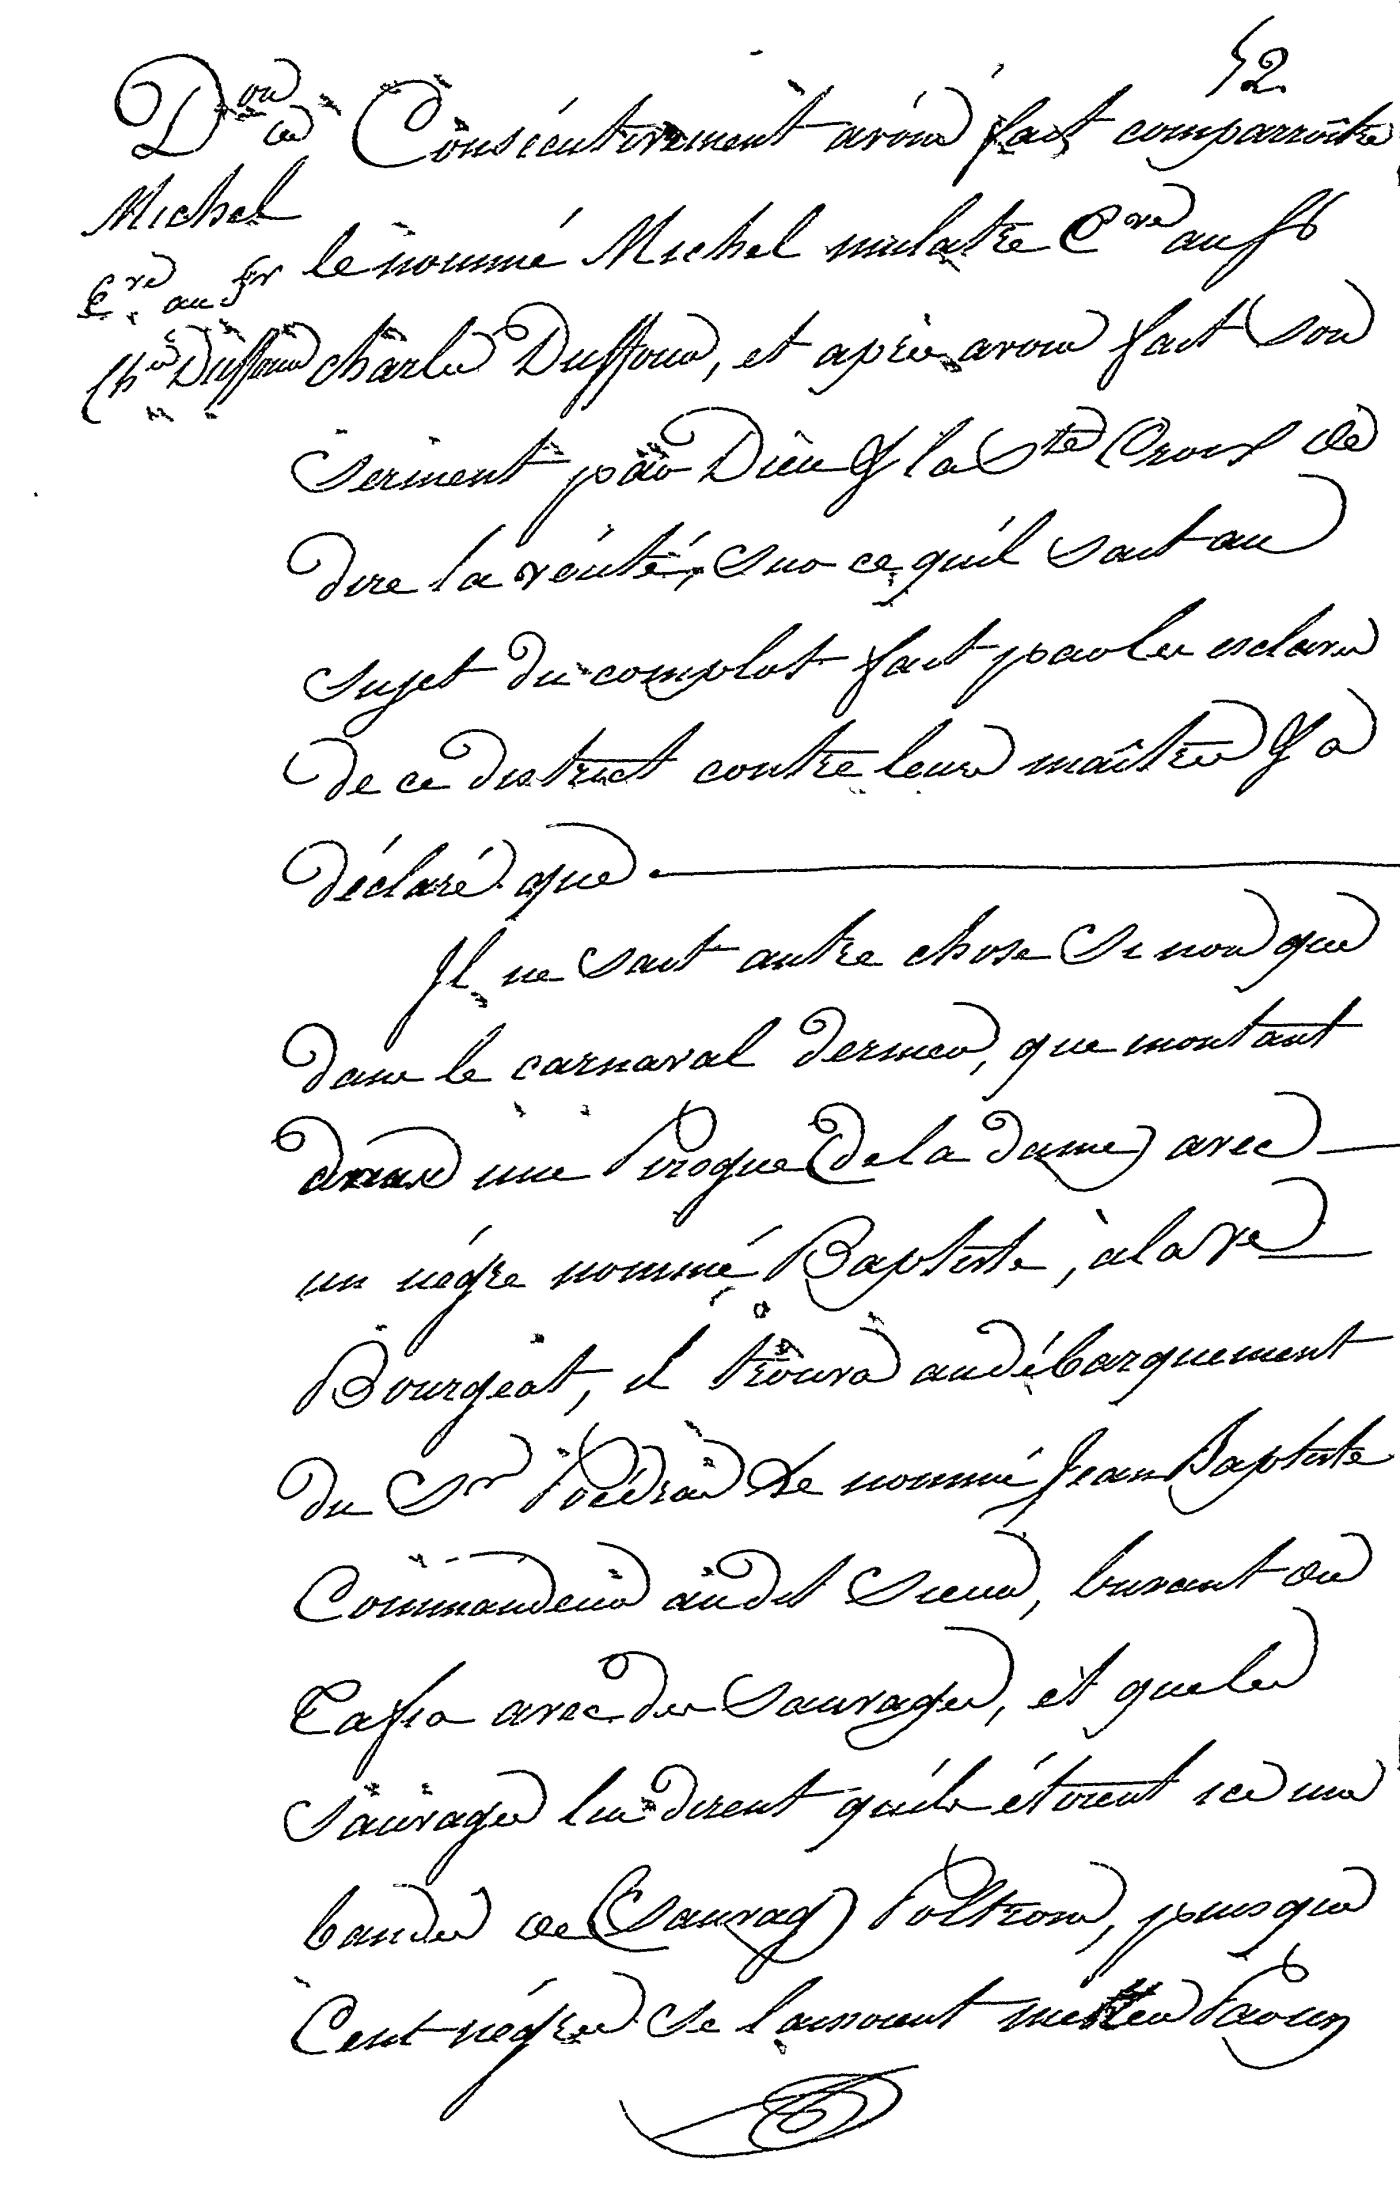 52
D.on de
Michel
E.ve au Sr
Ch.es Duffour
Consécutivement avons fait comparroître
le nommé Michel mulatre E.ve au Sr
Charles Duffour, et après avoir fait Son
Serment par Dieu & la S.te Croix de
dire la vérité, Sur ce qu'il Sait au
Sujet du complot fait par les esclaves
de ce district contre leurs maîtres & a
déclaré que
Il ne Sait autre chose Si non que
dans le carnaval dernier, que montant
dans une Pirogue de la dame avec
un négre nommé Baptiste, à la V.e
Bourgeat, il trouva au débarquement
du S.r Poëdras Le nommé Jean Baptiste
Commandeur au dit Sieur, buvant du
Tafia avec des Sauvages, et que les
Sauvages lui dirent qu'ils étoient ici une
bande de Sauvag Poltrons, puisque
Cent négres se laissoient mettre